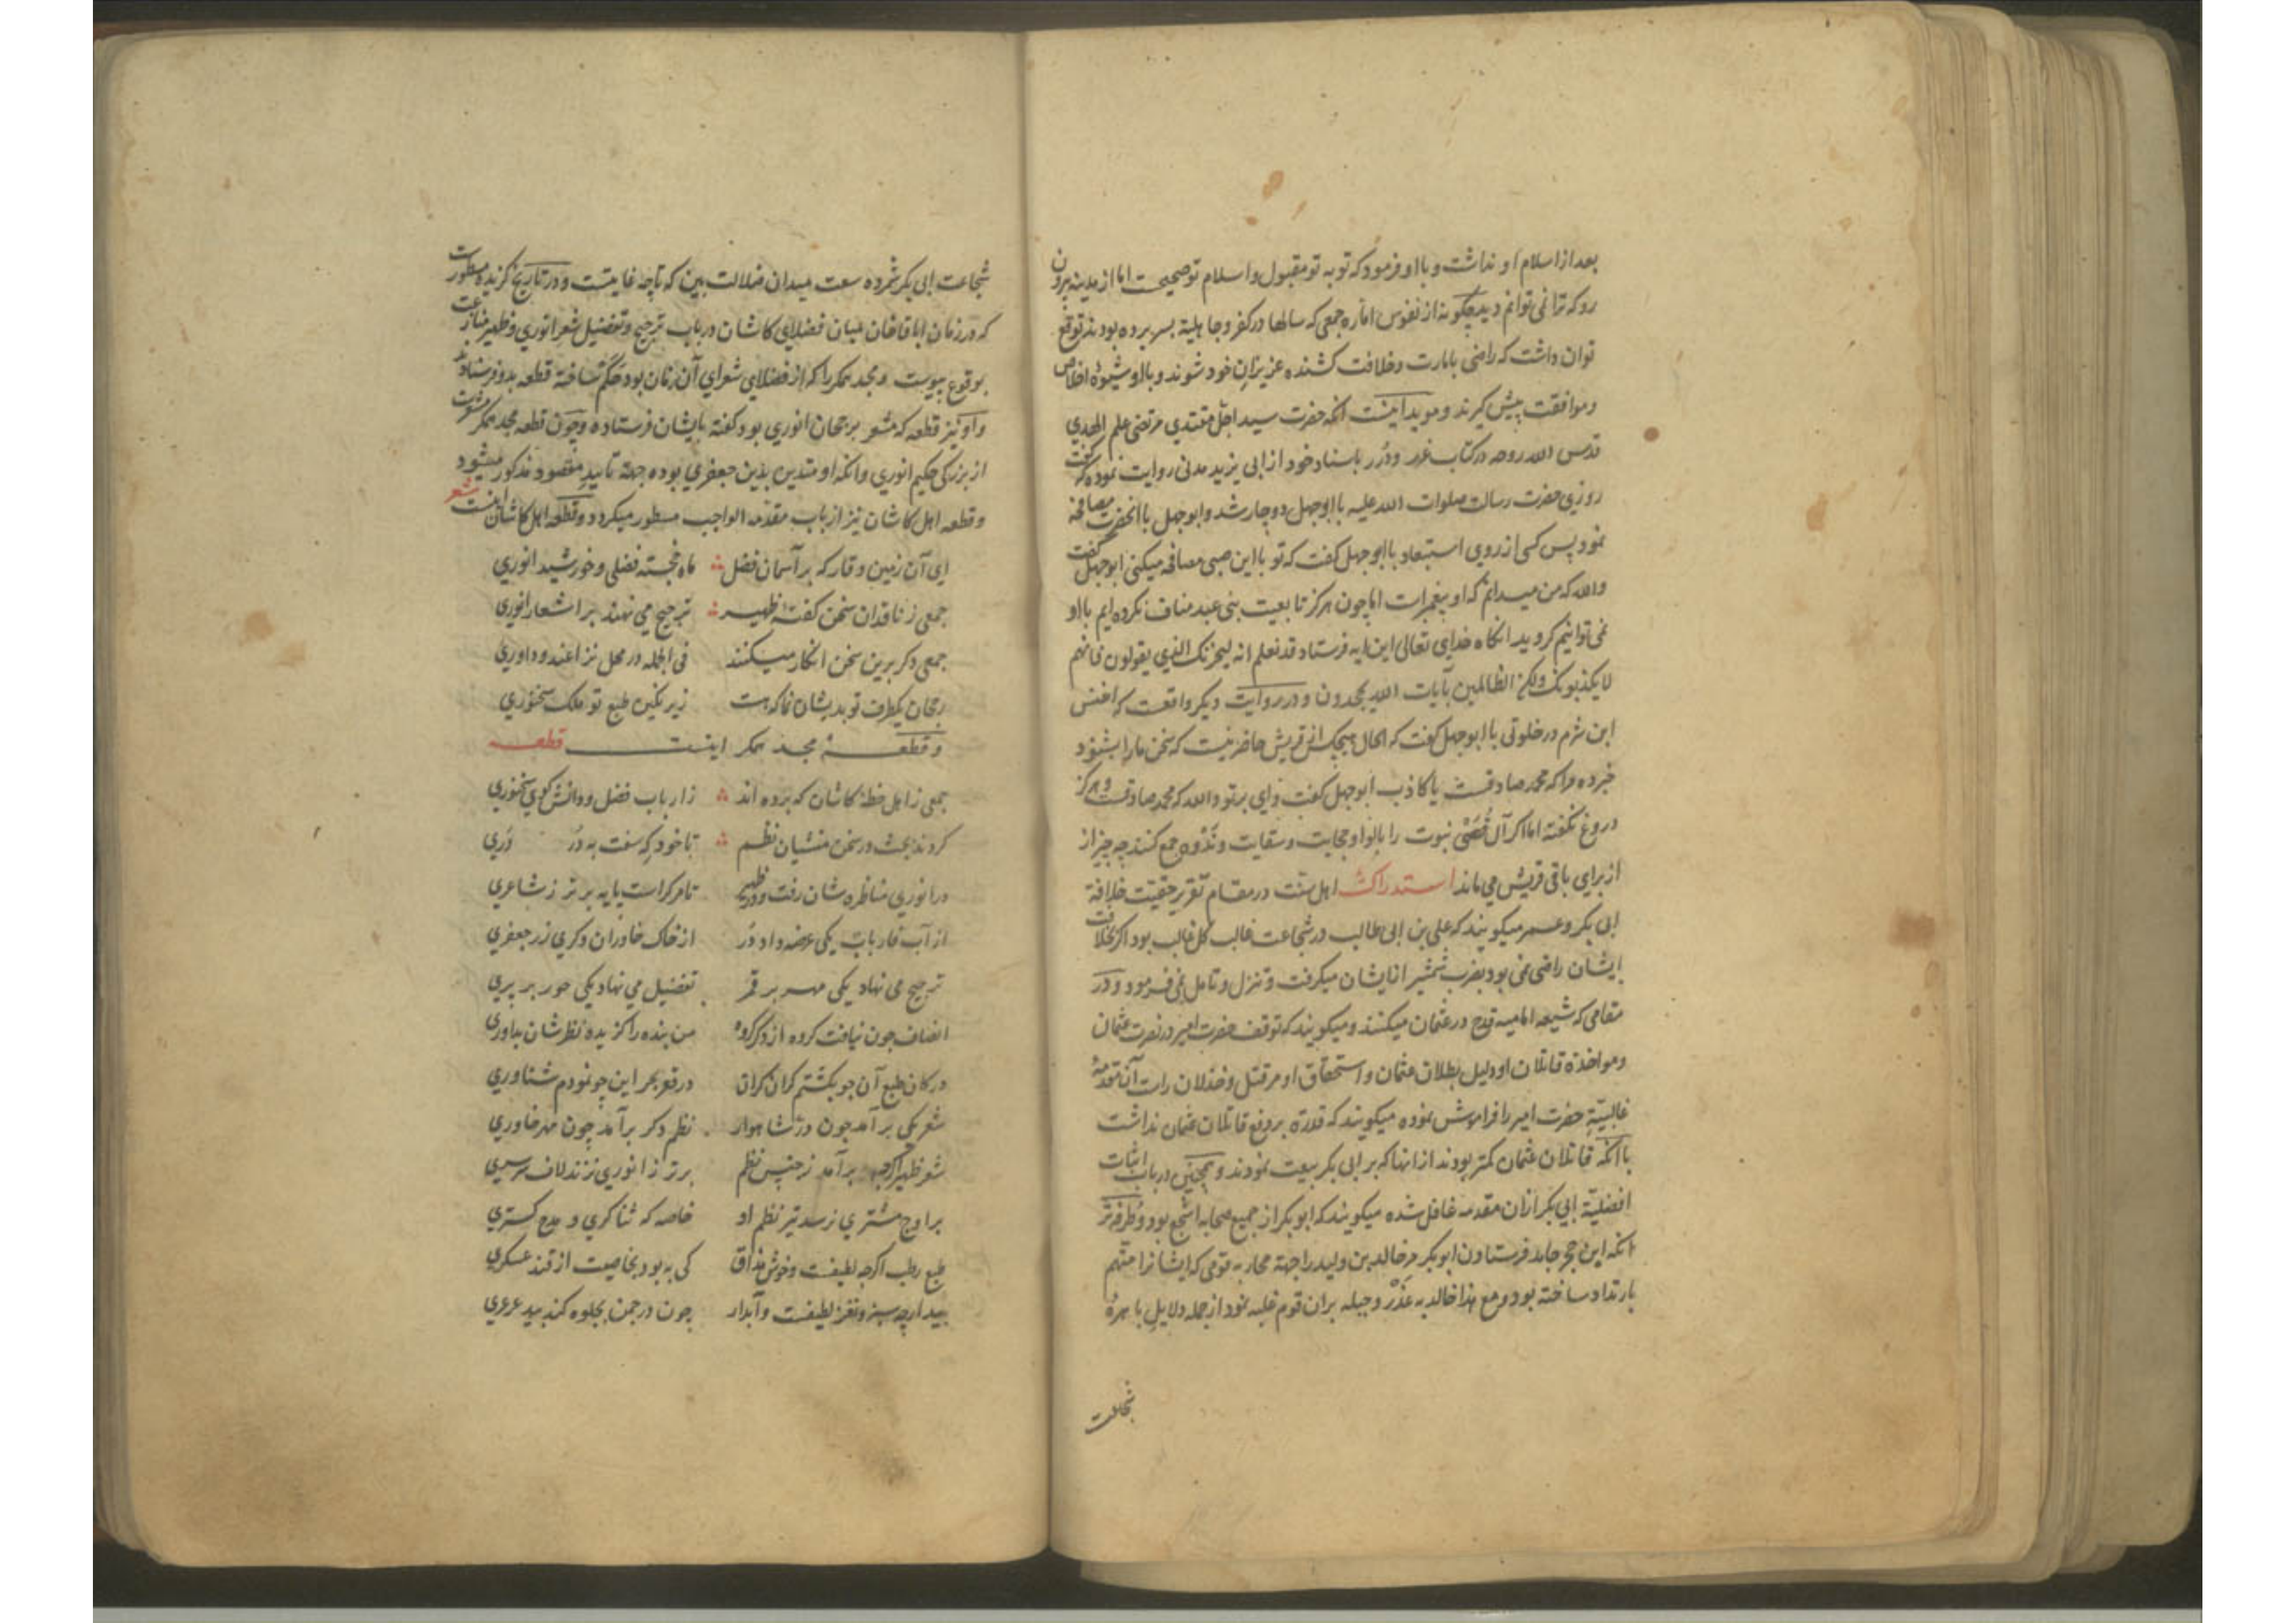 بعد از اسلام او نداشت و باو فرمود که توبه تو مقبول و اسلام تو صحیحست اما از مدینه بیرون
رو که ترا نمی توانم دید چگونه از نفوس اماره جمعی که سالها در کفر و جاهلیة بسر برده بودند توقع
توان داشت که راضی بامارت و خلافت کشنده عزیزان خود شوند و با او شیوۀ اخلاص
و موافقت پیش گیرند و موید اینست انکه حضرت سید اجل مقتدی مرتضی علم الهدی
قدس الله روحه در کتاب غرر و درر باسناد خود از ابی یزید مدنی روایت نموده که گفت
روزی حضرت رسالت صلوات الله علیه با ابوجهل دوچار شد و ابوجهل با انحضرت مصافحه
نمود پس کسی از روی استبعاد با ابوجهل گفت که تو با این صبی مصافحه میکنی ابوجهل گفت
والله که من میدانم که او پیغمبرست اما چون هرگز تابعیت بنی عبد مناف نکرده ایم با او
نمی توانیم گروید انگاه خدای تعالی این ایه فرستاد قد نعلم انه لیحزنک الذی یقولون فانهم
لا یکذبونک ولکن الظالمین بآیات الله یجحدون و در روایت دیگر واقعست که اخنس
ابن شرم در خلوتی با ابوجهل گفت که الحال هیچکس از قریش حاضر نیست که سخن ما را بشنود
خبر ده مرا که محمد صادقست یا کاذب ابوجهل گفت وای بر تو والله که محمد صادقست و هرگز
دروغ نگفته اما اگر آل قُصَیّ نبوت را با لوا و حجابت و سقایت و نَدْوه جمع کنند چه چیز از
از برای باقی قریش می ماند استدراک اهل سنّت در مقام تقریر حقیّت خلافة
ابی بکر و عمر میگویند که علی بن ابی طالب در شجاعت غالب کل غالب بود اگر بخلافت
ایشان راضی نمی بود بضرب شمشیر از ایشان میگرفت و تنزل و تامل نمی فرمود و در
مقامی که شیعه امامیه قدح در عثمان میکنند و میگویند که توقف حضرت امیر در نصرت عثمان
و مواخذۀ قاتلان او دلیل بطلان عثمان و استحقاق او مر قتل و خذلان راست آن مقدمۀ
غالبیّة حضرت امیر را فراموش نموده میگویند که قدرة بر دفع قاتلان عثمان نداشت
با آنکه قاتلان عثمان کمتر بودند از انها که بر ابی بکر بیعت نمودند و همچنین در باب اثبات
افضلیّة ابی بکر ازان مقدمه غافل شده میگویند که ابوبکر از جمیع صحابه اشجع بود و طرفه تر
انکه این حجر جاهد فرستادن ابوبکر مر خالد بن ولید را جهة محاربه قومی که ایشانرا متّهم
بارتداد ساخته بود و مع هذا خالد به غدر و حیله بران قوم غلبه نمود از جمله دلایل باهره
شجاعت
شجاعت ابی بکر شمرده سعت میدان ضلالت بین که تا چه غایتست و در تاریخ گزیده مسطورست
که در زمان اباقاخان میان فضلای کاشان در باب ترجیح و تفضیل شعر انوری و ظهیر منازعت
بوقوع پیوست و مجد همکر را که از فضلای شعرای آن زمان بود حَکَم ساخته قطعه بدو فرستادند
و او نیز قطعه که مشعر برجحان انوری بود گفته بایشان فرستاده و چون قطعه مجد همکر مشعرست
از بزرگی حکیم انوری و انکه او متدین بدین جعفری بوده جهة تایید مقصود مذکور میشود
و قطعه اهل کاشان نیز از باب مقدمه الواجب مسطور میگردد و قطعه اهل کاشان اینست شعر
ای آن زمین وقار که بر آسمان فضل ماه خجسته فضلی و خورشید انوری
جمعی ز ناقدان سخن گفته ظهیر ترجیح می نهند بر اشعار انوری
جمعی دگر برین سخن انکار میکنند فی الجمله در محل نزاعند و داوری
رجحان یکطرف تو بدیشان نما که هست زیر نگین طبع تو ملک سخنوری
و قطعۀ مجد همکر اینست قطعه
جمعی ز اهل خطۀ کاشان که برده اند ز ارباب فضل و دانش گوی سخنوری
کردند بحث در سخن منشیان نظم تا خود که سفت به دُر دَری
در انوری مناظره شان رفت و در ظهیر تا مر کراست پایه برتر ز شاعری
از آب فاریاب یکی عرضه داد دُر از خاک خاوران دگری زر جعفری
ترجیح می نهاد یکی مهر بر قمر تفضیل می نهاد یکی حور بر پری
انصاف چون نیافت گروه از دگر گروه من بنده را گزیده نظرشان بداوری
در کان طبع آن چو بگشتم کران کران در قعر بحر این چو نمودم شناوری
شعر یکی بر آمد چون درّ شاهوار نظم دگر بر آمد چون مهر خاوری
شعر ظهیر اگرچه برآمد ز جنس نظم برتر ز انوری نزند لاف سرسری
بر اوج مشتری نرسد تیر نظم او خاصه که ثناگری و مدح گستری
طبع رطب اگرچه لطیفست و خوش مذاق کی به بود بخاصیت از قند عسکری
بید ارچه سبز و نغز لطیفست و آبدار چون در چمن بجلوه کند بید عرعری